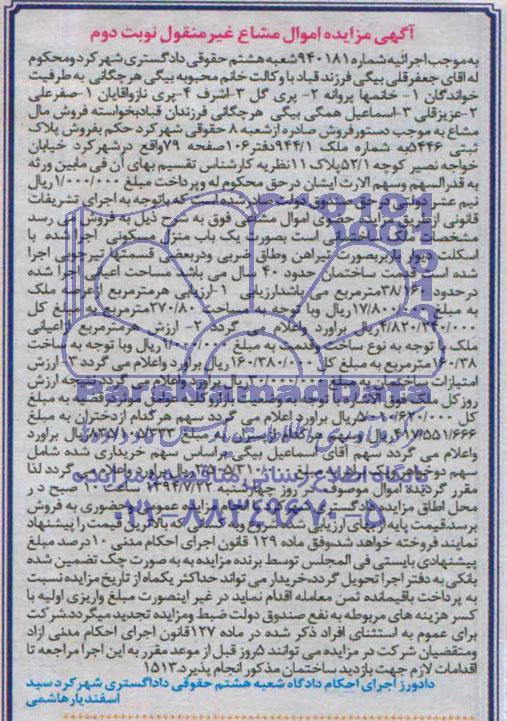 آگهی مزایده اموال مشاع غیرمنقول نوبت دوم
به موجب اجرائیه شماره ۹۴۰۱۸۱ شعبه هشتم حقوقی دادگستری شهرکرد ومحکوم
له اقای جعفرقلی بیگی فرزند قباد با وکالت خانم محبوبه بیگی هرچگانی به طرفیت
خواندگان ۱- خانمها پروانه ۲- پری گل ۳-اشرف ۴-پری نازواقایان ۱-صفرعلی
۲-عزیزقلی ۳-اسماعیل همگی بیگی هرچگانی فرزندان قباد بخواسته فروش مال
مشاع به موجب دستورفروش صادره ازشعبه ۸ حقوقی شهرکرد حکم بفروش پلاک
ثبتی ۵۴۴۶ به شماره ملک ۹۴۴/۱ دفتر ۱۰۶ صفحه ۷۹ واقع درشهرکرد خیابان
خواجه نصیر کوچه ۵۲/۱ پلاک ۱۱ نظریه کارشناس تقسیم بهای آن فی مابین ورثه
به قدرالسهم وسهم الارث ایشان درحق محکوم له وپرداخت مبلغ ۱/۰۰۰/۰۰۰ ریال
نیم عشر دولتی درحق صندوق دولت صادر شده است که باتوجه به اجرای تشریفات
قانونی ازطریق مزایده حضوری اموال مشاعی فوق به شرح ذیل به فروش می رسد
مشخصات ملک است بصورت یک باب منزل مسکونی اجرا شده با
اسکلت دیوار باربربصورت پیراهن وطاق ضربی ودربعضی قسمتها تیرچوبی اجرا
شده است قدمت ساختمان حدود ۴۰ سال می باشد مساحت اعیانی اجرا شده
درحدود مترمربع می باشد ارزیابی ۱-ارزیابی هرمترمربع ازعرصه ملک
به مبلغ ریال وبا توجه به مساحت ۲۷۰/۸۰ مترمربع به مبلغ کل
ریال براورد واعلام می گردد ۲- ارزش هرمترمربع ازاعیانی
ملک با توجه به نوع ساخت وقدمت به مبلغ ریال وبا توجه به مساحت
مترمربع به مبلغ کل ۱۶۰/۳۸۰/۰۰۰ ریال براورد واعلام می گردد ۳- ارزش
امتیازات ساختمان به مبلغ ریال براورد واعلام می گردد نتیجه ارزش
روزکل ملک به مبلغ
کل ریال براورد اعلام می گردد سهم هرکدام ازدختران به مبلغ
ریال وسهم هرکدام ازپسران به مبلغ ریال براورد
واعلام می گردد سهم آقای اسماعیل بیگی براساس سهم خریداری شده شامل
سهم دوخواهر به مبلغ ریال براورد واعلام می گردد لذا
مقرر گردیده اموال موصوف در روز چهارشنبه ۱۳۹۴/۷/۲۲ ساعت ۱۰ صبح در
محل اطاق مزایده دادگستری شهرکرد با انجام مزایده عمومی وحضوری به فروش
برسد قیمت پایه ازبهای ارزیابی شده شروع وبه کسانی که بالاترین قیمت را پیشنهاد
نمایند فروخته خواهد شد وفق ماده ۱۲۹ قانون اجرای احکام مدنی ۱۰ درصد مبلغ
پیشنهادی بایستی فی المجلس توسط برنده مزایده به به صورت چک تضمین شده
بانکی به دفتر اجرا تحویل گردد، خریدار می تواند حداکثر یکماه از تاریخ مزایده نسبت
به پرداخت باقیمانده ثمن معامله اقدام نماید در غیر اینصورت مبلغ واریزی اولیه با
کسر هزینه های مربوطه به نفع صندوق دولت ضبط ومزایده تجدید میگردد شرکت
برای عموم به استثنای افراد ذکر شده در ماده ۱۲۷ قانون اجرای احکام مدنی ازاد
ومتقضیان شرکت در مزایده می توانند ۵ روز قبل از موعد مقرر به این اجرا مراجعه تا
اقدامات لازم جهت بازدید ساختمان مذکور انجام پذیرد ۱۵۱۳
دادورز اجرای احکام دادگاه شعبه هشتم حقوقی دادگستری شهرکرد سید
اسفندیار هاشمی
ParsNamadData
پایگاه اطلاع رسانی مناقصه و مزایده
۰۲۱-۸۸۳۴۹۶۷۰-۵